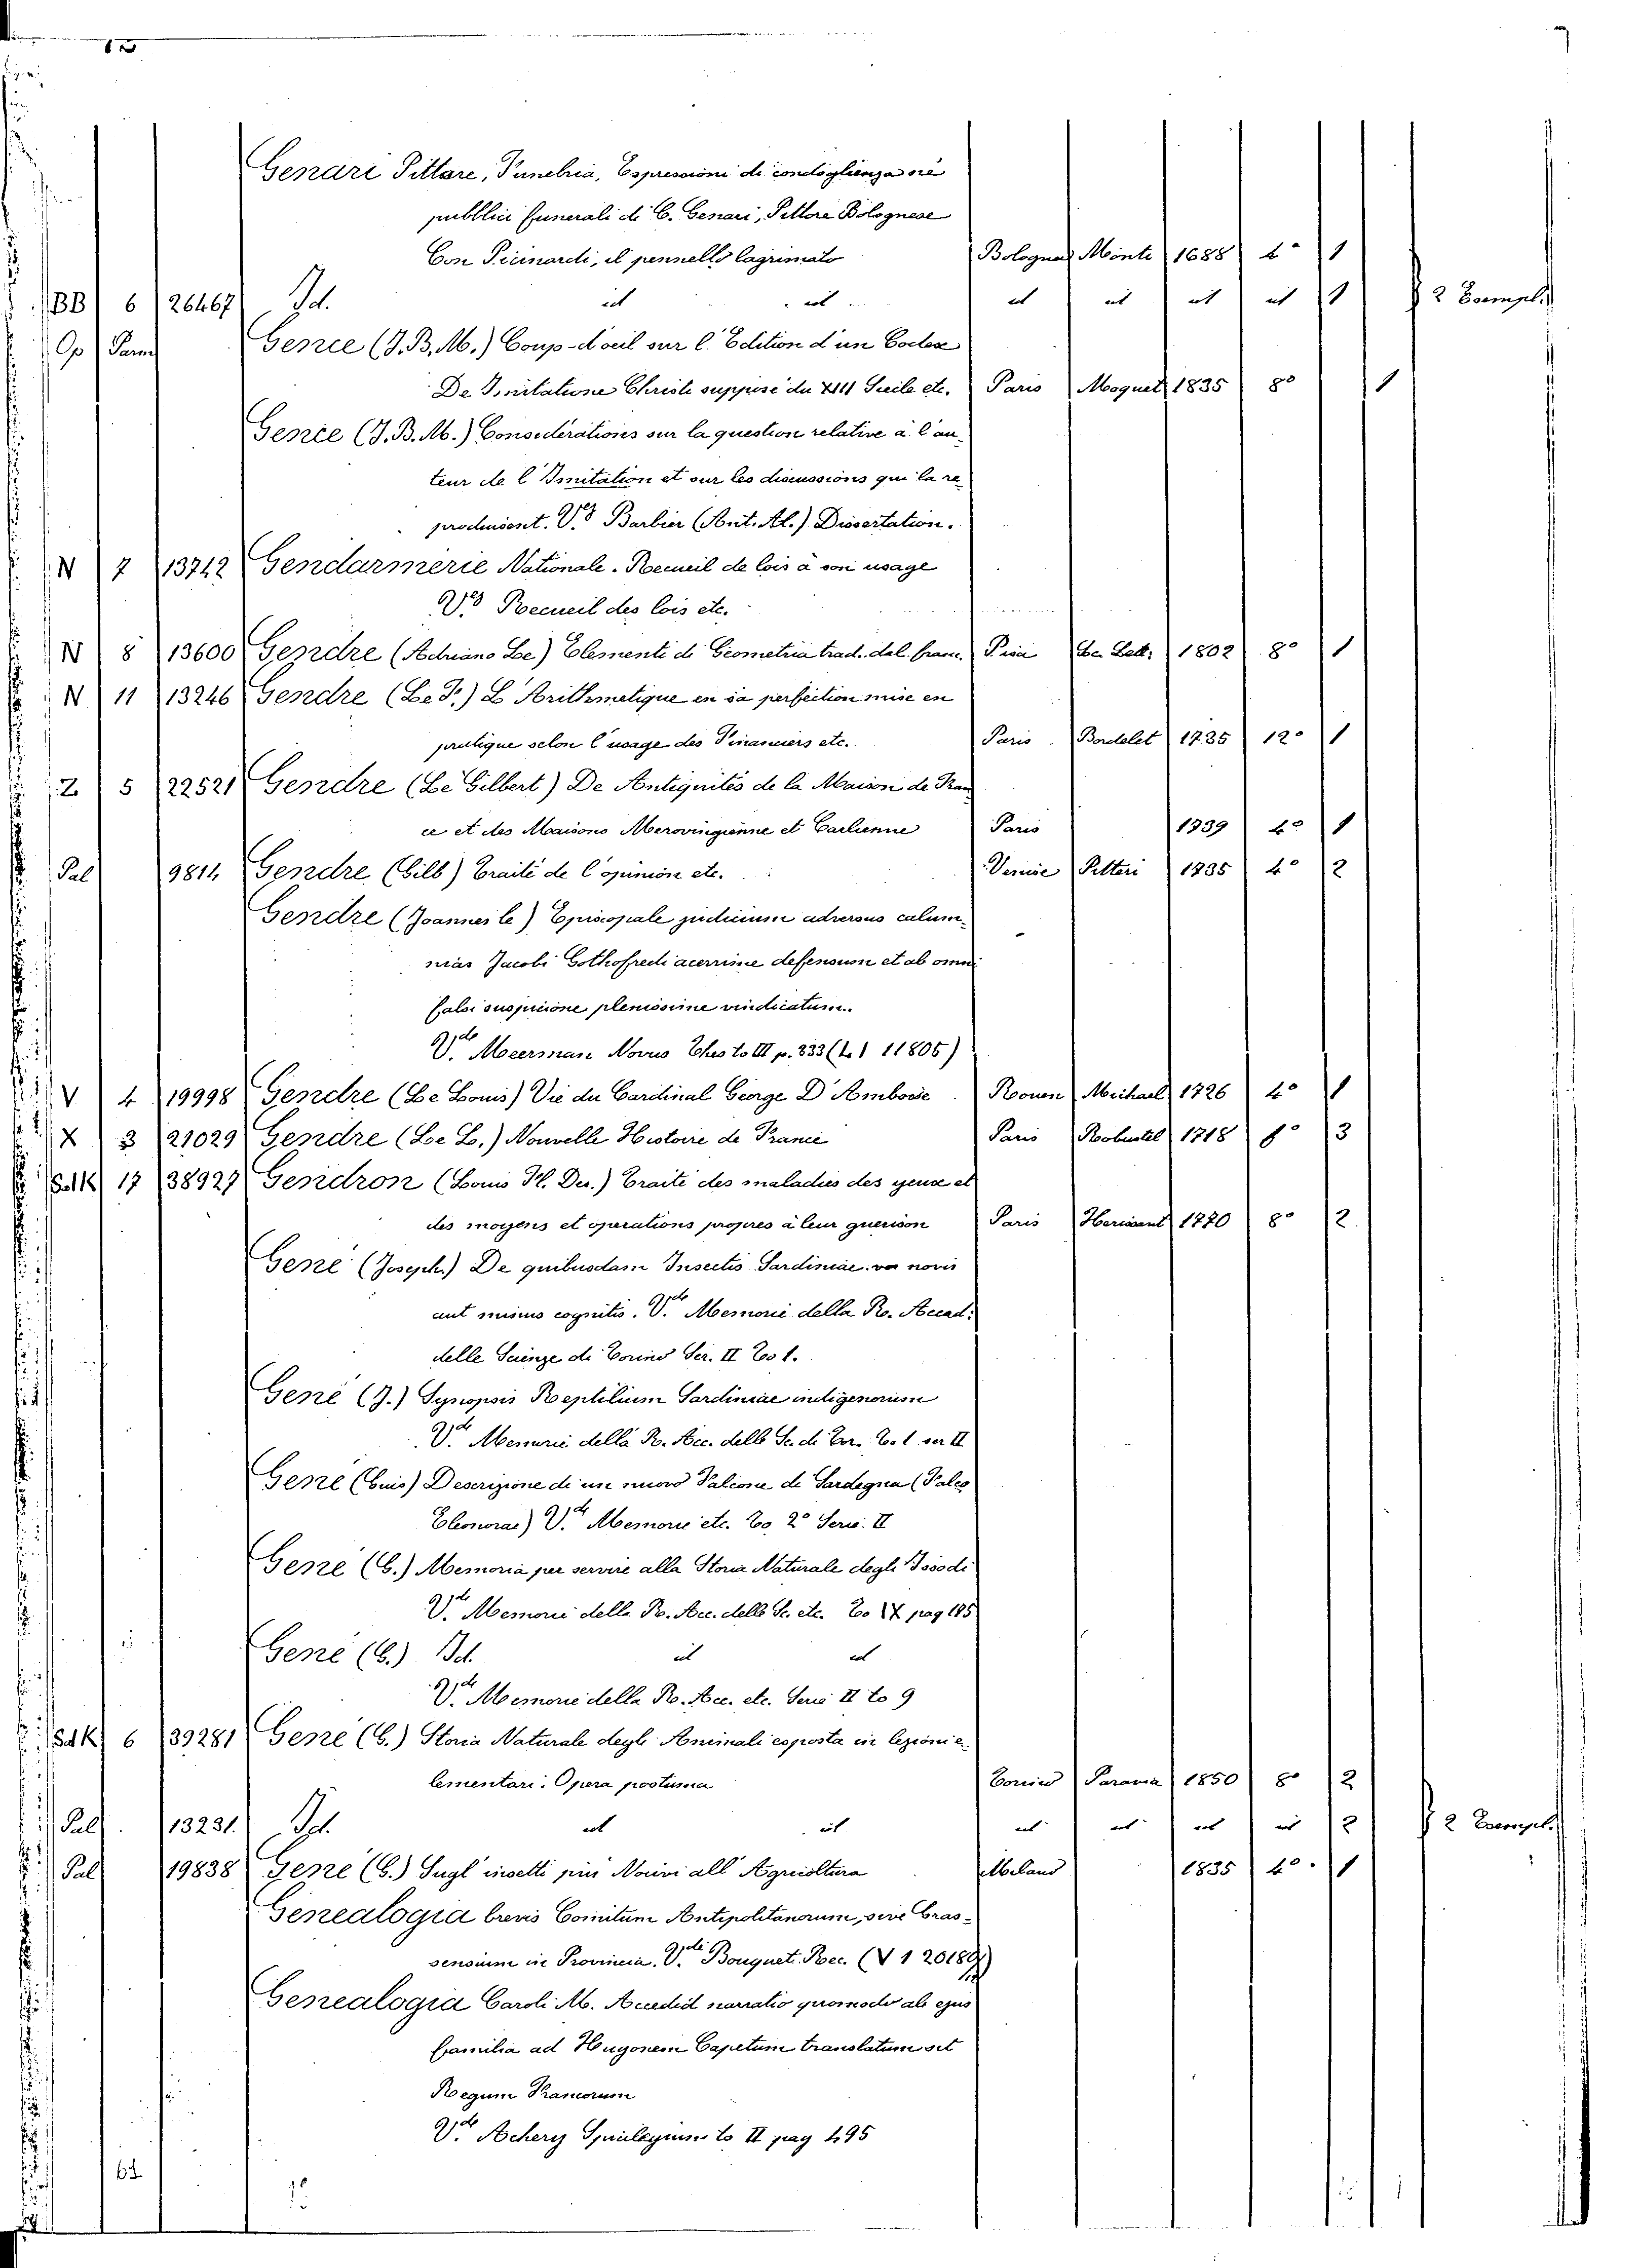 Genari Pittore, Funebria, Espressioni di condoglienza ne
pubblici funerali di C. Genari, Pittore Bolognese
Con Piinardi, il pennello lagrimato Bologna Monti 1688 4° 1
BB 6 26467 Id. id id id id id id 1 2 Esempl.
Op Parm Gence (J. B. M.) Coup-d'oeil sur l'Edition d'un Codex
De Imitatione Christi supposé du XIII Siecle etc. Paris Moquet 1835 8° 1
Gence (J. B. M.) Considerations sur la question relative à l'au-
teur de l'Imitation et sur les discussions qui la re
produisent. V.e Barbier (Ant. Al.) Dissertation.
N 7 13712 Gendarmerie Nationale. Recueil de lois à son usage
V.e Recueil des lois etc.
N 8 13600 Gendre (Adriano Le) Elementi di Geometria trad. dal franc. Pisa 1802 8° 1
N 11 13246 Gendre (Le F.) L'Arithmetique en sa perfection mise en
pratique selon l'usage des Financiers etc. Paris Bordelet 1735 12° 1
Z 5 22521 Gendre (Le Gilbert) De Antiquités de la Maison de Fran
ce et des Maisons Merovingienne et Carlienne Paris 1739 4° 1
Pal 9814 Gendre (Gilb) Traité de l'opinion etc. Venise Pitteri 1735 4° 2
Gendre (Joannes le) Episcopale judicium adversus calum
nias Jacobi Gothofredi acerrime defensum et ab omni
falsi suspicione plenissime vindicatum.
V.de Meerman Novus Thes to III p. 333 (L 1 11805)
V 4 19998 Gendre (Le Louis) Vie du Cardinal George D'Amboise Rouen Michael 1726 4° 1
X 3 21029 Gendre (Le L.) Nouvelle Histoire de France Paris Robustel 1718 f° 3
SdK 17 38927 Gendron (Louis Fl. Des.) Traité des maladies des yeux et
des moyens et operations propres à leur guerison Paris Herissant 1770 8° 2
Gené (Joseph.) De quibusdam Insectis Sardiniae novis
aut minus cognitis. V.de Memorie della R. Accad.
delle Scienze di Torino Ser. II To 1.
Gené (J.) Synopsis Reptilium Sardiniae indigenorum
V.de Memorie della R. Acc. delle Sc. di Tor. To. 1. ser II
Gené (Guis) Descrizione di un nuovo Falcone di Sardegna (Falco
Eleonorae) V.de Memorie etc. To 2° Serie: II
Gené (G.) Memoria per servire alla Storia Naturale degli Issodi
V.de Memorie della R. Acc. delle Sc. etc. To IX pag 195
Gené (G.) Id. id id
V.de Memorie della R. Acc. etc. Serie II to 9
SdK 6 39281 Gené (G.) Storia Naturale degli Animali esposta in lezioni e
lementari. Opera postuma Torino Paravia 1850 8° 2
Pal 13231. Id. id id id id id id 2 2 Esempl.
Pal 19838 Gené (G.) Sugl' insetti più Nocivi all' Agricoltura Milano 1835 4° 1
Genealogia brevis Comitum Antipolitanorum, sive Gras-
sensium in Provincia. V.de Bouquet. Rec. (V 1 20189)
Genealogia Caroli M. Accedid narratio quomodo ab ejus
familia ad Hugonem Capetum translatum sit
Regum Francorum
V.de Achery Spicilegium to II pag 495